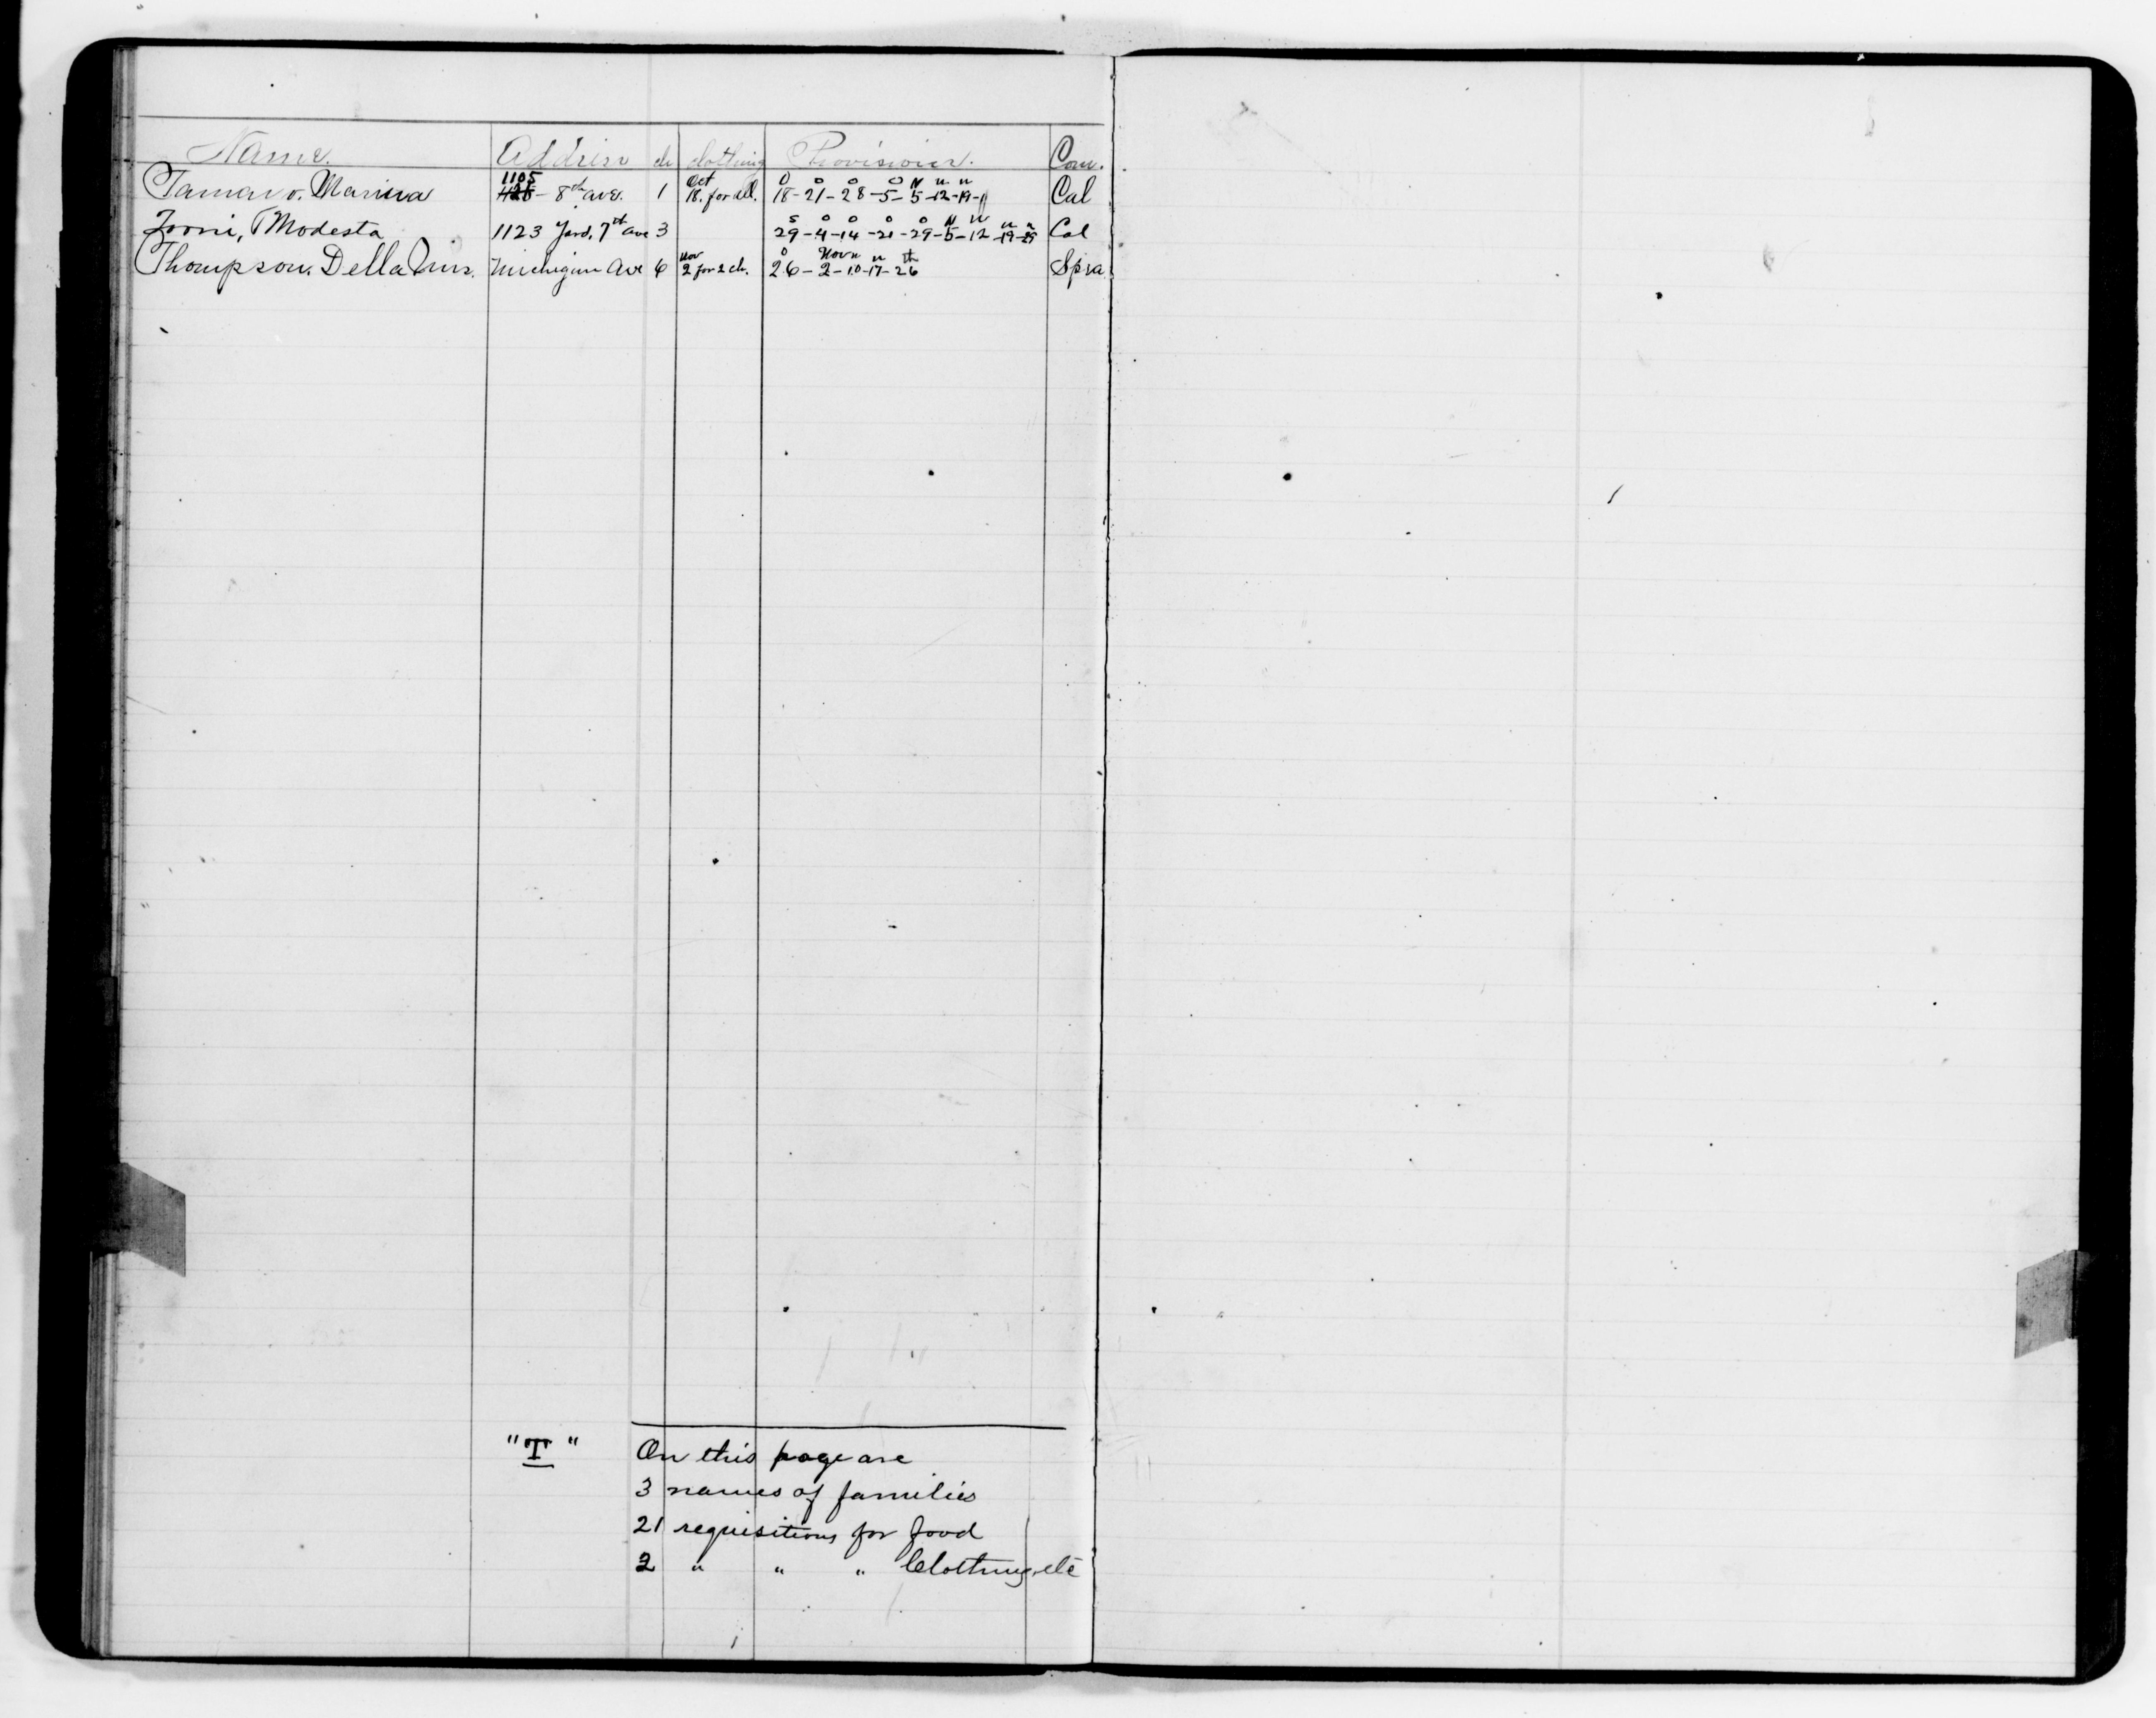 Name. Address ch clothing Provisions. Com.
Tamaro. Marina 1105 428 - 8th ave. 1 Oct 18. for all. 18-21-28-5-5-12-19- Cal
Modesta 1123 7th ave 3 29-4-14-21-29-5-12-19-29 Cal
Thompson. Della Mrs. Michigan Ave 6 Nov 2 for 2 ch. 26-2-10-17-26 Spra
"T" On this page are
3 names of families
21 requisitions for food
2 " " " Clothing, etc